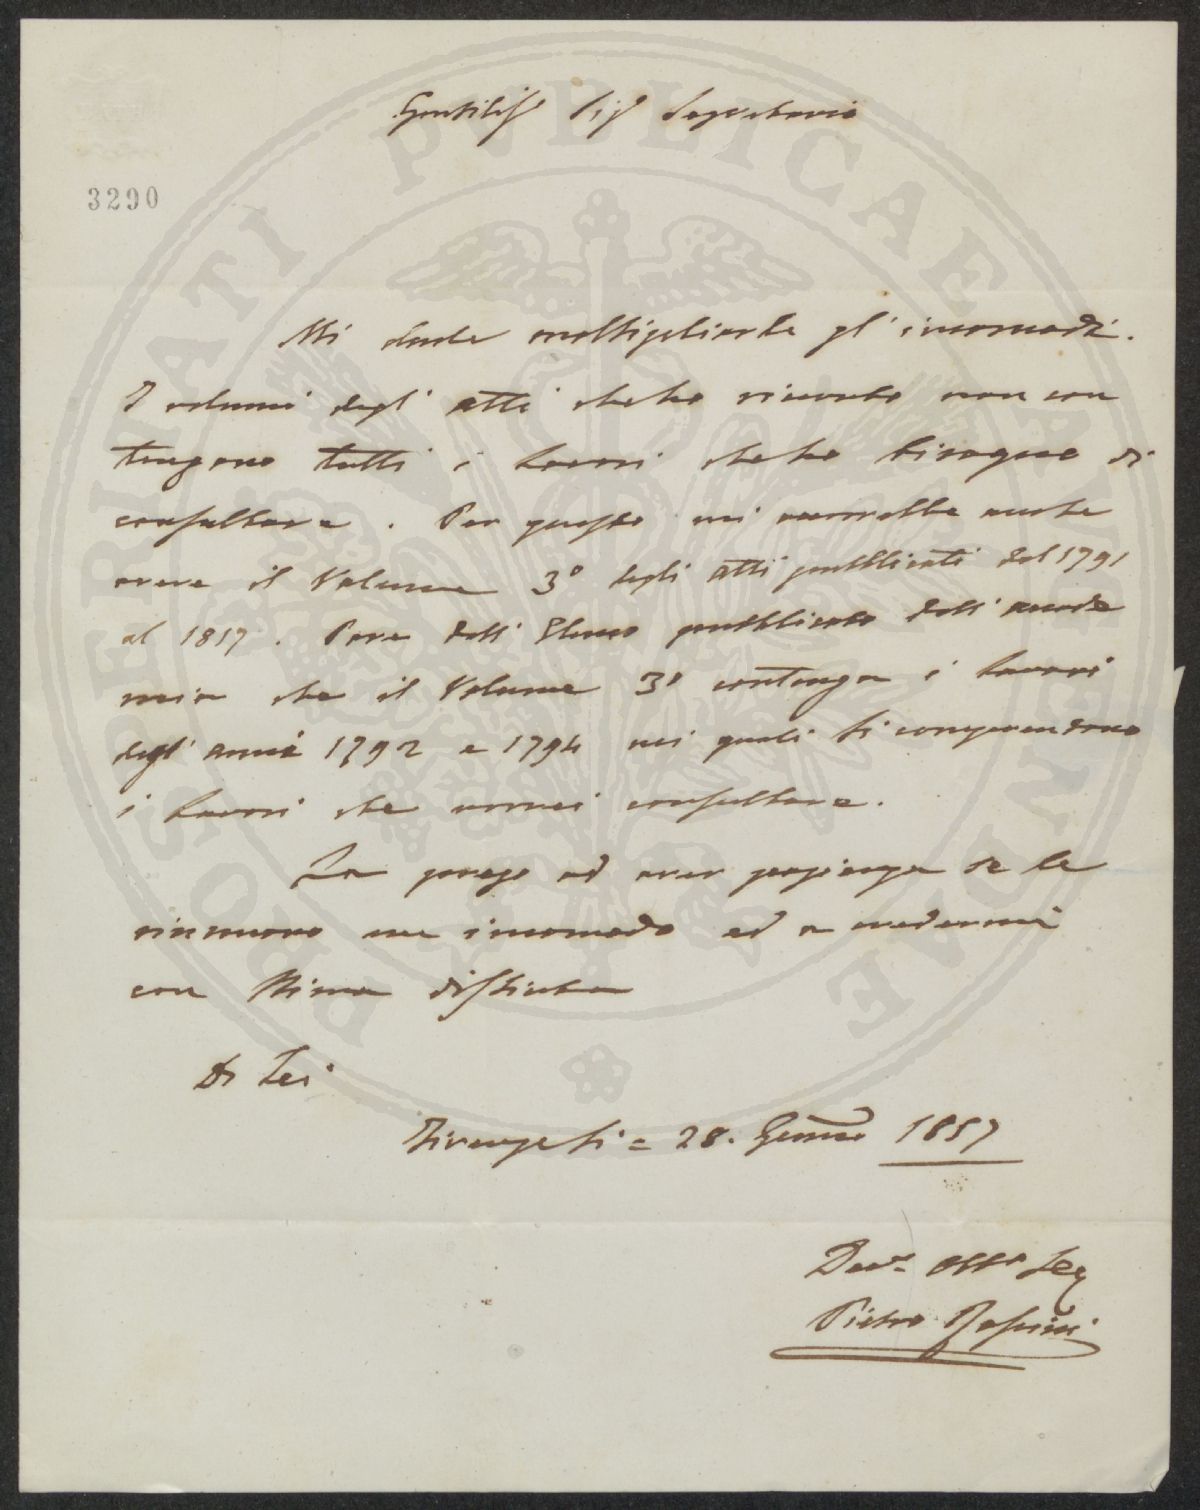 Gentiliss.º Sig.r Segretario
3290
Mi duole moltiplicarle gl' incomodi.
I volumi degl' atti che ho ricevuto non con
tengono tutti i lavori che ho bisogno di
consultare. Per questo mi occorrebbe anche
avere il Volume 3º degli atti pubblicati dal 1791
al 1817. Pare dall' Elenco pubblicato dall' accade
mia che il Volume 3º contenga i lavori
degl' anni 1792 e 1794 nei quali si comprendono
i lavori che vorrei consultare.
La prego ad aver pazienza se le
rinnuovo un incomodo ed a credermi
con Stima distinta
Di Lei
Firenze li = 28. Genn.o 1857
Dev.º Obb.º Ser.
Pietro
PROSPERITATI PVBLICAE AVGENDAE